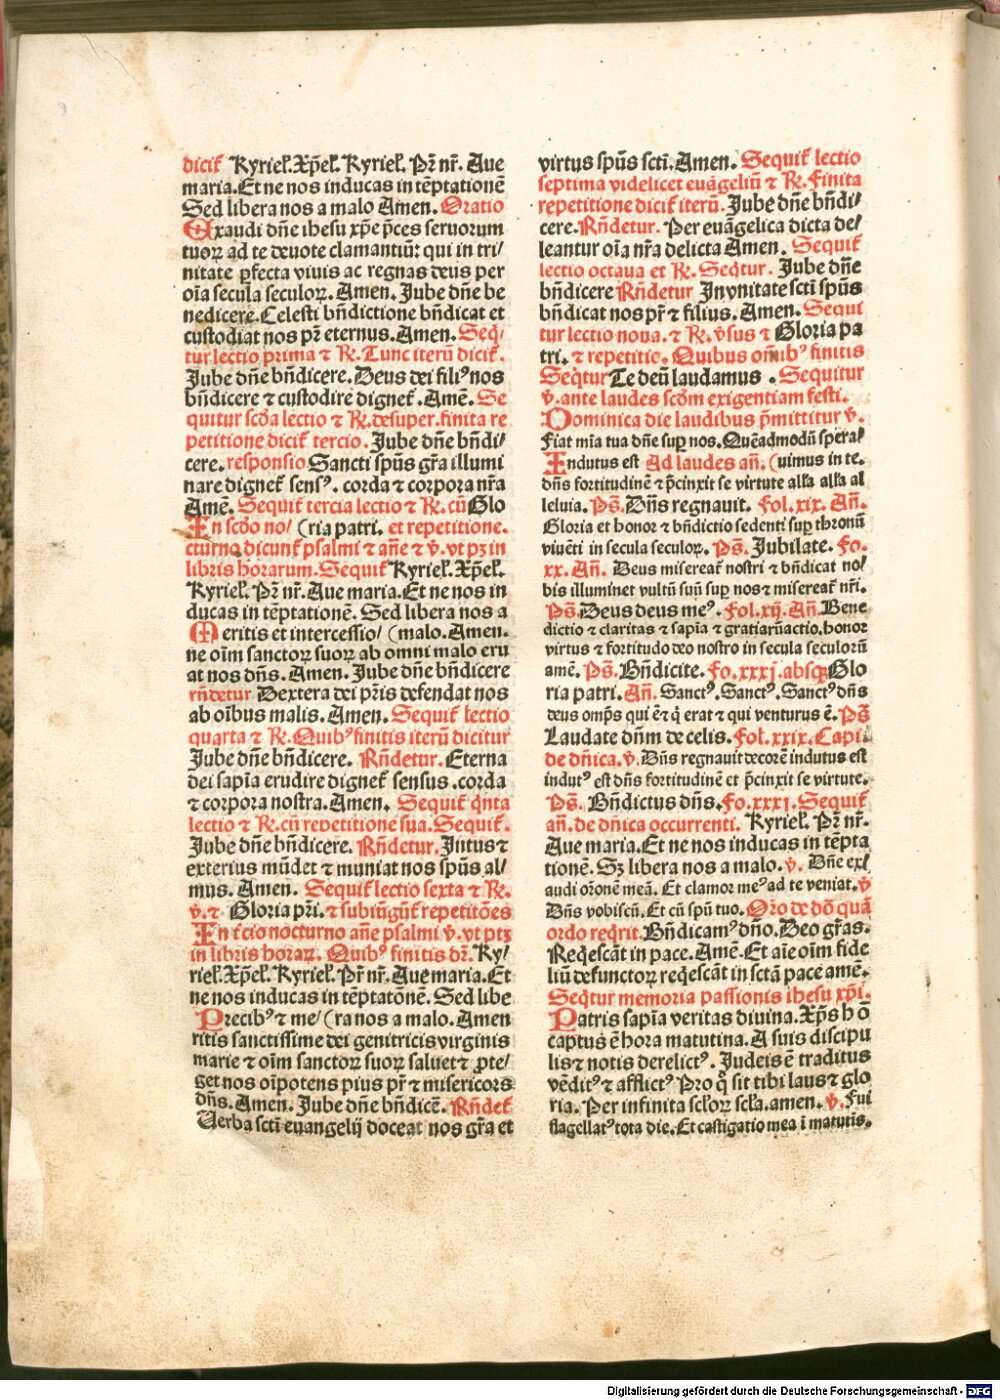 dicit᷑ Kyriel̄. Xp̄el̄. Kyriel̄. Pr̄ nr̄. Aue
maria. Et ne nos inducas in tēptationē
Sed libera nos a malo Amen. Oratio
Exaudi dn̄e ihesu xp̄e p̄ces seruorum
tuoꝝ ad te deuote clamantiū: qui in tri/
nitate ꝑfecta viuis ac regnas deus per
oīa secula seculoꝝ. Amen. Jube dn̄e be
nedicere. Celesti bn̄dictione bn̄dicat et
custodiat nos pr̄ eternus. Amen. Seq̄/
tur lectio prima ⁊ R̷. Tunc iterū dicit᷑.
Jube dn̄e bn̄dicere. Deus dei filiꝰ nos
bn̄dicere ⁊ custodire dignet᷑. Amē. Se
quitur scd̄a lectio ⁊ R̷. desuper. finita re
petitione dicit᷑ tercio. Jube dn̄e bn̄di/
cere. responsio Sancti spūs gr̄a illumi
nare dignet᷑ sensꝰ. corda ⁊ corpora nr̄a
Amē. Sequit᷑ tercia lectio ⁊ R̷. cū Glo
In scd̄o no/ (ria patri. et repetitione.
cturno dicunt᷑ psalmi ⁊ an̄e ⁊ v̄. vt pꝫ in
libris horarum. Sequit᷑ Kyriel̄. Xp̄el̄.
Kyriel̄. Pr̄ nr̄. Aue maria. Et ne nos in
ducas in tēptationē. Sed libera nos a
Meritis et intercessio/ (malo. Amen.
ne oīm sanctoꝝ suoꝝ ab omni malo eru
at nos dn̄s. Amen. Jube dn̄e bn̄dicere
rn̄detur Dextera dei pr̄is defendat nos
ab oībus malis. Amen. Sequit᷑ lectio
quarta ⁊ R̷. Quibꝰ finitis iterū dicitur
Jube dn̄e bn̄dicere. Rn̄detur. Eterna
dei sapīa erudire dignet᷑ sensus. corda
⁊ corpora nostra. Amen. Sequit᷑ q̄nta
lectio ⁊ R̷. cū repetitione sua. Sequit᷑.
Jube dn̄e bn̄dicere. Rn̄detur. Intus ⁊
exterius mūdet ⁊ muniat nos spūs al/
mus. Amen. Sequit᷑ lectio sexta ⁊ R̷.
v̄. ⁊. Gloria pr̄i. ⁊ subiūgūt᷑ repetitōes
In t̄cio nocturno an̄e psalmi v̄. vt ptꝫ
in libris horaꝝ. Quibꝰ finitis dr̄. Ky/
riel̄. Xp̄el̄. Kyriel̄. Pr̄ nr̄. Aue maria. Et
ne nos inducas in tēptatōnē. Sed libe
Precibꝰ ⁊ me/ (ra nos a malo. Amen
ritis sanctissime dei genitricis virginis
marie ⁊ oīm sanctoꝝ suoꝝ saluet ⁊ ꝓte/
get nos oīpotens pius pr̄ ⁊ misericors
dn̄s. Amen. Jube dn̄e bn̄dicē. Rn̄det᷑
Verba sct̄i euangelij doceat nos gr̄a et
virtus spūs sct̄i. Amen. Sequit᷑ lectio
septima videlicet euāgeliū ⁊ R̷. Finita
repetitione dicit᷑ iterū. Jube dn̄e bn̄di/
cere. Rn̄detur. Per euāgelica dicta de/
leantur oīa nr̄a delicta Amen. Sequit᷑
lectio octaua et R̷. Seq̄tur. Jube dn̄e
bn̄dicere Rn̄detur In vnitate sct̄i spūs
bn̄dicat nos pr̄ ⁊ filius. Amen. Sequi
tur lectio nona. ⁊ R̷. v̄sus ⁊ Gloria pa
tri. ⁊ repetitio. Quibus oīnibꝰ finitis
Seq̄tur Te deū laudamus. Sequitur
v̄. ante laudes scd̄m exigentiam festi.
Dominica die laudibus p̄mittitur v̄.
Fiat mīa tua dn̄e suꝑ nos. Quēadmodū spera/
Indutus est Ad laudes an̄. (uimus in te.
dn̄s fortitudinē ⁊ p̄cinxit se virtute all̄a all̄a al
leluia. Ps̄. Dn̄s regnauit. Fol. xix. An̄.
Gloria et honor ⁊ bn̄dictio sedenti suꝑ thronū
viuēti in secula seculoꝝ. Ps̄. Jubilate. Fo.
xx. An̄. Deus misereat᷑ nostri ⁊ bn̄dicat no/
bis illuminet vultū suū suꝑ nos ⁊ misereat᷑ nr̄i.
Ps̄. Deus deus meꝰ. Fol. xij. An̄. Bene
dictio ⁊ claritas ⁊ sapīa ⁊ gratiarūactio. honor
virtus ⁊ fortitudo deo nostro in secula seculorū
amē. Ps̄. Bn̄dicite. Fo. xxxj. absqꝫ Glo
ria patri. An̄. Sanctꝰ. Sanctꝰ. Sanctꝰ dn̄s
deus omp̄s qui ē ⁊ q̄ erat ⁊ qui venturus ē. Ps̄
Laudate dn̄m de celis. Fol. xxix. Capi.
de dn̄ica. v̄. Dn̄s regnauit decorē indutus est
indutꝰ est dn̄s fortitudinē et p̄cinxit se virtute.
Ps̄. Bn̄dictus dn̄s. Fo. xxxj. Sequit᷑
an̄. de dn̄ica occurrenti. Kyriel̄. Pr̄ nr̄.
Aue maria. Et ne nos inducas in tēpta
tionē. Sꝫ libera nos a malo. v̄. Dn̄e ex/
audi or̄onē meā. Et clamor meꝰ ad te veniat. v̄
Dn̄s vobiscū. Et cū spū tuo. Or̄o de dō quā
ordo req̄rit. Bn̄dicamꝰ dn̄o. Deo gr̄as.
Req̄escāt in pace. Amē. Et aīe oīm fide
liū defunctoꝝ req̄escāt in sctā pace amē.
Seq̄tur memoria passionis ihesu xp̄i.
Patris sapīa veritas diuina. Xp̄s hō
captus ē hora matutina. A suis discipu
lis ⁊ notis derelictꝰ. Judeis ē traditus
vēditꝰ ⁊ afflictꝰ Pro q̄ sit tibi laus ⁊ glo
ria. Per infinita scl̄oꝝ scl̄a. amen. v̄. Fui
flagellatꝰ tota die. Et castigatio mea ī matutīs.
Digitalisierung gefördert durch die Deutsche Forschungsgemeinschaft - DFG